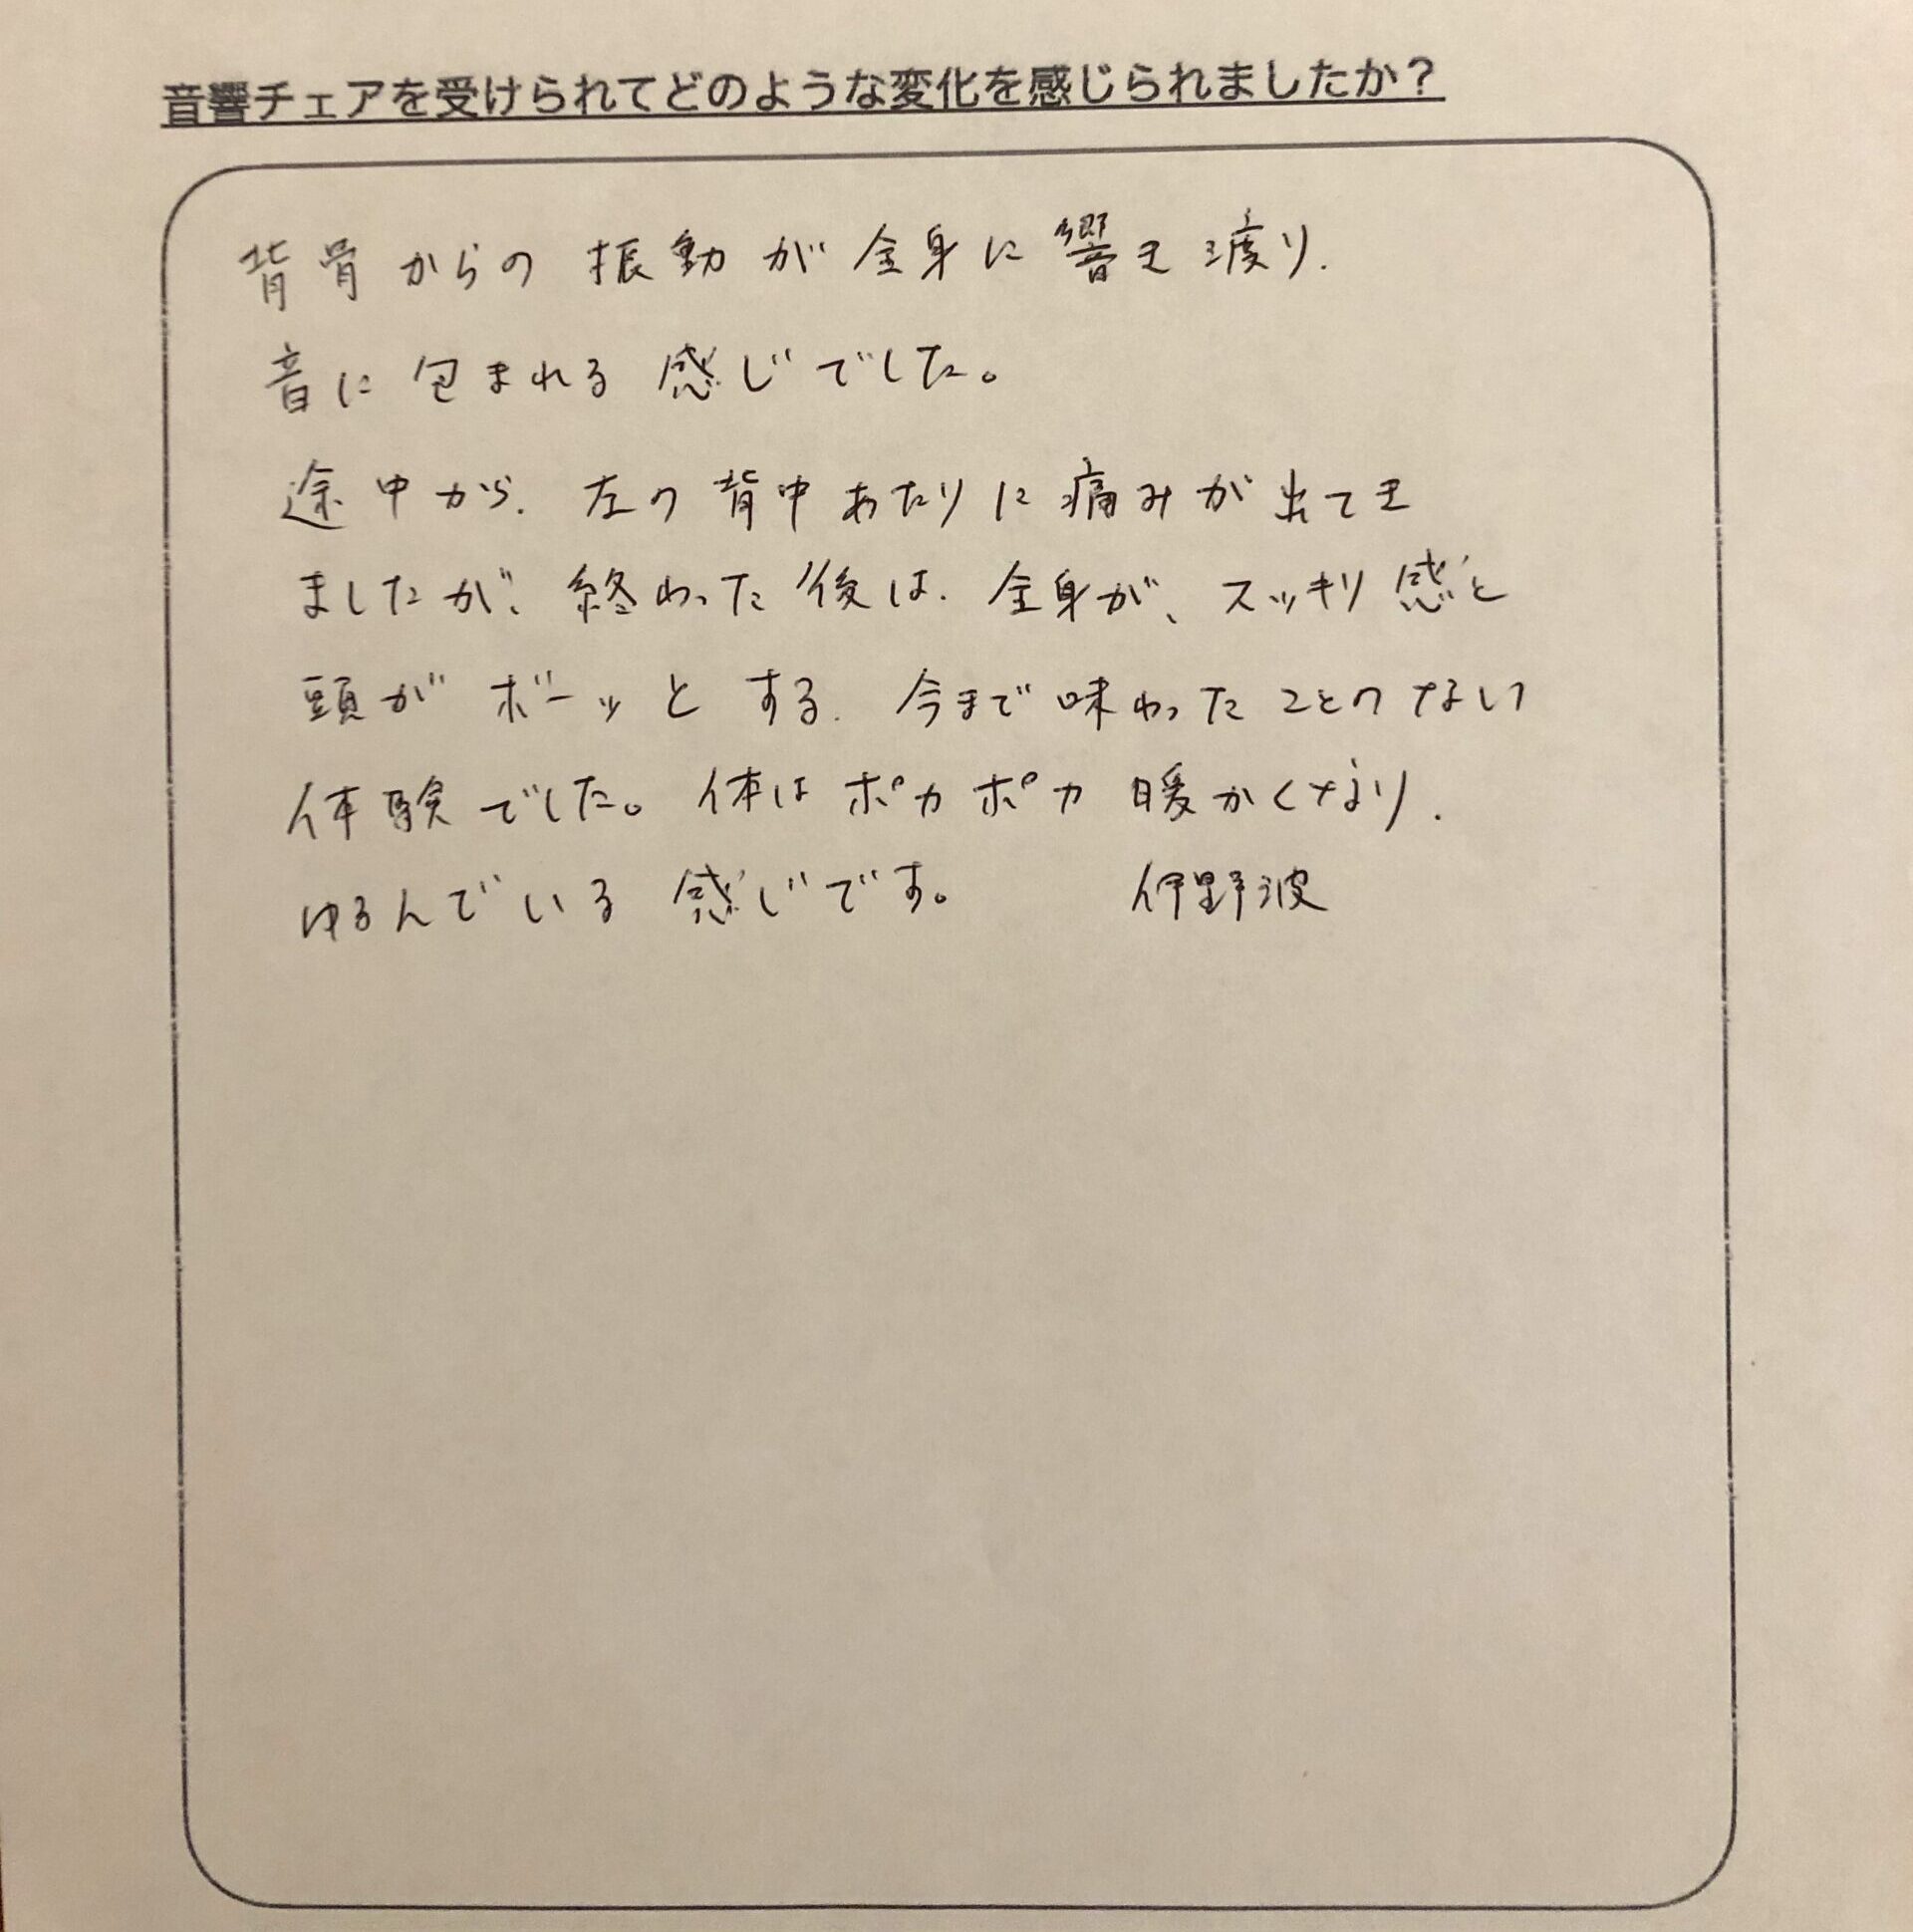 音響チェアを受けられてどのような変化を感じられましたか？
背骨からの振動が全身に響き渡り、
音に包まれる感じでした。
途中から、左の背中あたりに痛みが出てき
ましたが、終わった後は、全身が、スッキリ感と
頭がボーッとする、今まで味わったことのない
体験でした。体はポカポカ暖かくなり、
ゆるんでいる感じです。 伊野波